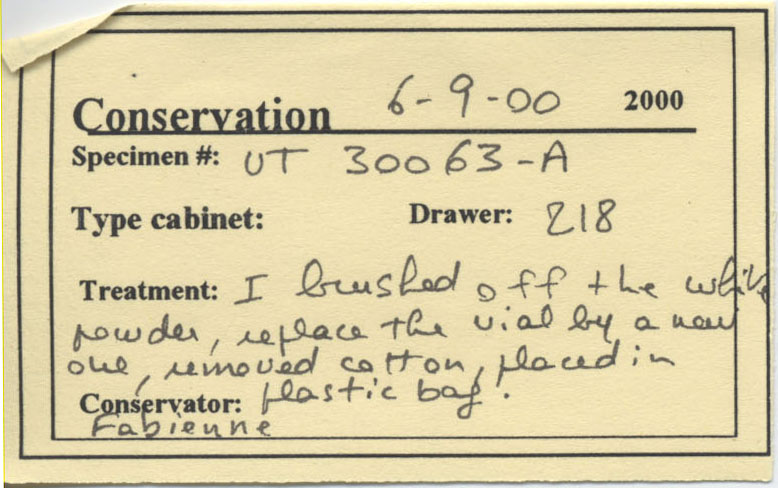 Conservation 6-9-00 2000
Specimen #: UT 30063-A
Type cabinet: Drawer: 218
Treatment: I brushed off the white
powder, replace the vial by a new
one, removed cotton, placed in
Conservator: plastic bag.
Fabienne